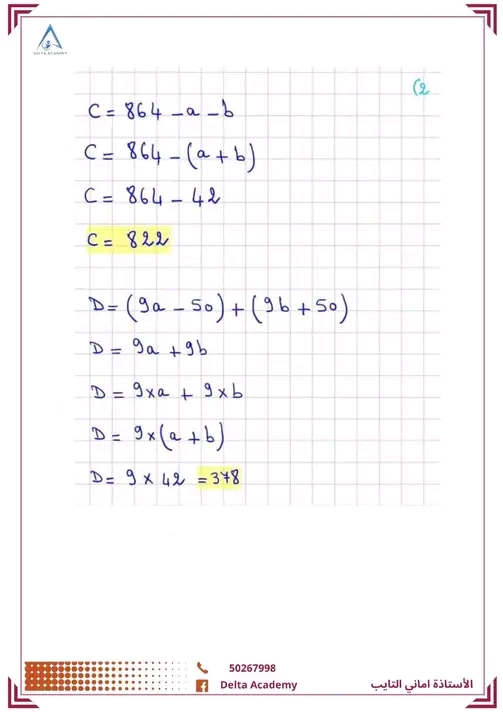 DELTA ACADEMY
(2
C = 864 - a - b
C = 864 - (a + b)
C = 864 - 42
C = 822
D = (9a - 50) + (9b + 50)
D = 9a + 9b
D = 9×a + 9×b
D = 9×(a + b)
D = 9 × 42 = 378
50267998
Delta Academy
الأستاذة اماني التايب